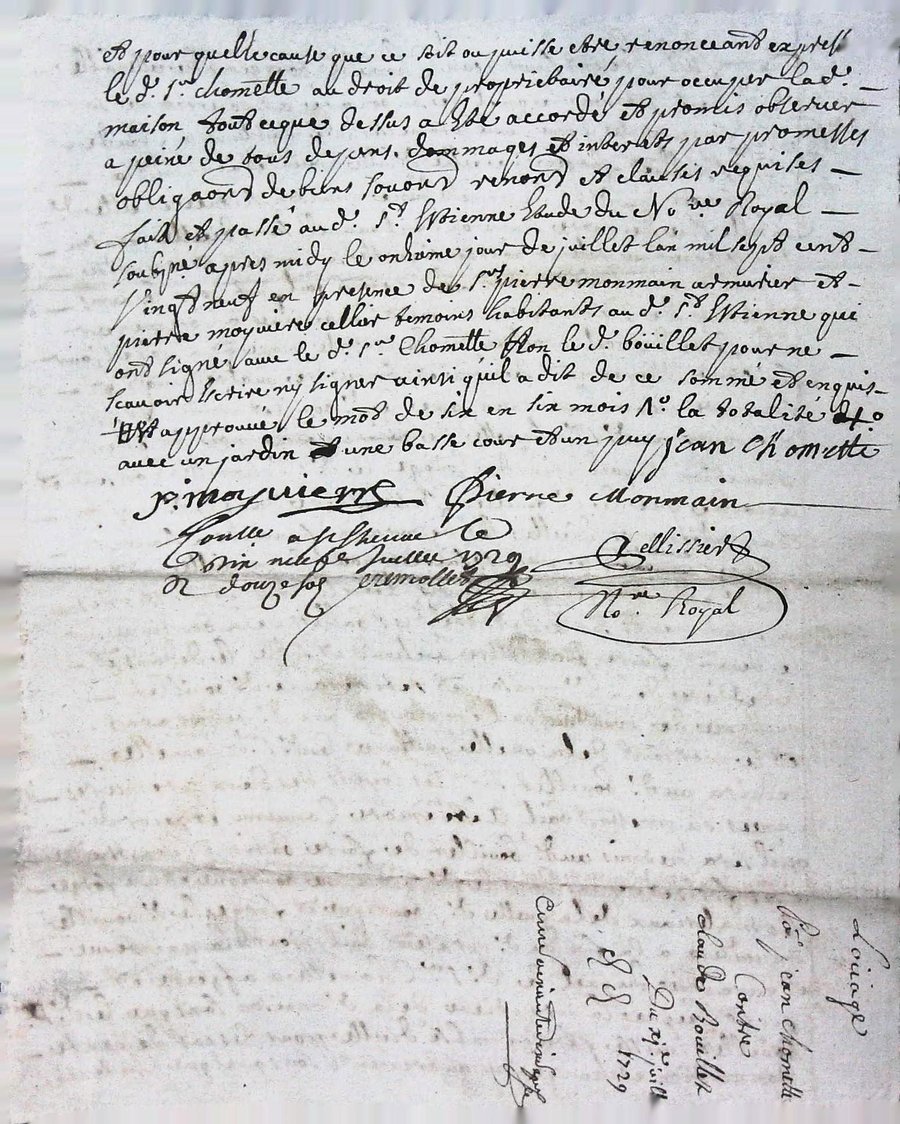 et pour quelle cause que ce soit ou puisse etre renonceant expres
le d. sr chomette au droit de proprietaire pour occuper la d.
maison tout ceque dessus a ete accordé et promis observer
a peine de tous depens dommages et interets par promesses
obligaons de biens renons et clauses requises
fait et passé au d. st Etienne Etude du Nore Royal
soubsne apres midy le onzieme jour de juillet lan mil sept cent
vingt neuf en presence de sr pierre monmain armurier et
pierre moyuiere cellier temoins habitants au d. st Etienne qui
ont signé avec le d. sr Chomette Non le d. boüillet pour ne
scavoir Escrire ny signer ainsi quil a dit de ce sommé et enquis
approuvé le mot de six en six mois 1o la totalité
avec un jardin et une basse cour et un puy jean Chomette
p. moyuierre Pierre Monmain
juillet 1729
R douze sols
Pellissier
Nore Royal
Loüage
Pour jean chomette
Contre
claude Boüillet
Du xje juill
1729